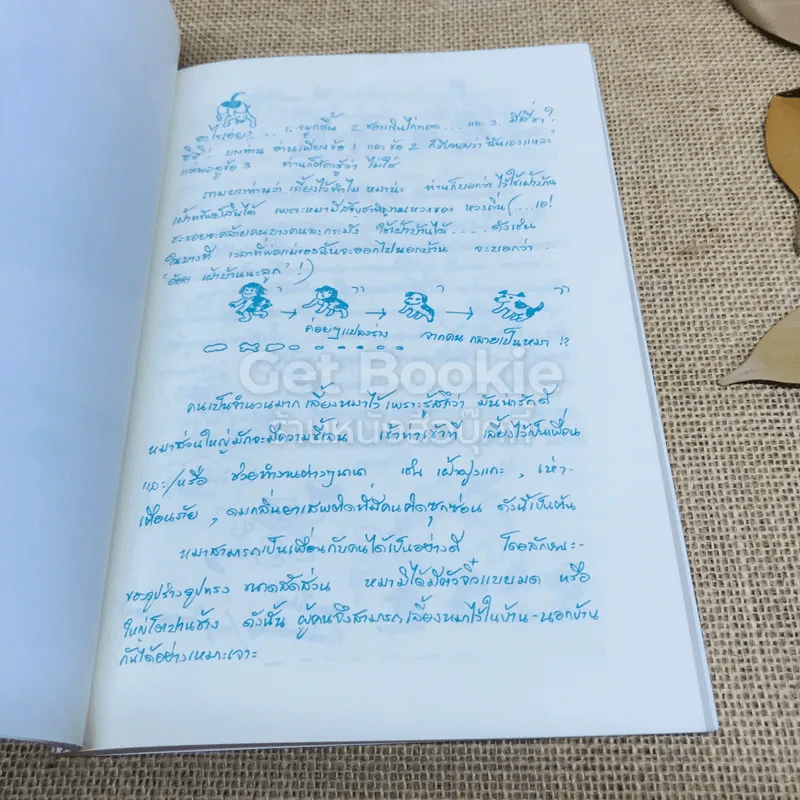 อะไรเอย?.... 1. จมูกชื้น 2. ชอบกินไก่ทอด ... และ 3. มีสี่ขา?
อิอิ! บางท่าน อ่านเพียงข้อ 1 และ ข้อ 2
ข้อ 3 ท่านก็ต้องรู้ว่า ไม่ใช่
ถามบางท่านว่า เลี้ยงไว้ทำไม หมาน่ะ ท่านก็บอกว่า ไว้ใช้เฝ้าบ้าน
เฝ้าทรัพย์สินได้ เพราะหมามีสัญชาตญาณหวงของ หวงถิ่น (...เอ!
ชะรอยจะคล้ายคนบางคนละกระมัง ใช้เฝ้าบ้านได้ .... ดังเช่น
ในบางที เวลาที่พ่อแม่ของฉันจะออกไปนอกบ้าน จะบอกว่า
เฝ้าบ้านนะลูก' !)
ค่อยๆแปลงร่าง จากคน กลายเป็นหมา !?
Get Bookie
ร้านหนังสือบุ๊คกี้
คนเป็นจำนวนมาก เลี้ยงหมาไว้ เพราะรู้สึกว่า มันน่ารักดี
หมาส่วนใหญ่มักจะมีความขี้เล่น เข้าท่าเข้าที เลี้ยงไว้เป็นเพื่อน
และ/หรือ ช่วยทำงานต่างๆนานา เช่น เฝ้าฝูงแกะ, เห่า-
เตือนภัย, ดมกลิ่นยาเสพติดที่มีคนคิดซุกซ่อน ดังนี้เป็นต้น
หมาสามารถเป็นเพื่อนกับคนได้เป็นอย่างดี โดยลักษณะ-
ของรูปร่างรูปทรง ขนาดสัดส่วน หมามิได้มีตัวจิ๋วแบบมด หรือ
ใหญ่โตปานช้าง ดังนั้น ผู้คนจึงสามารถ เลี้ยงหมาไว้ในบ้าน-นอกบ้าน
กันได้อย่างเหมาะเจาะ